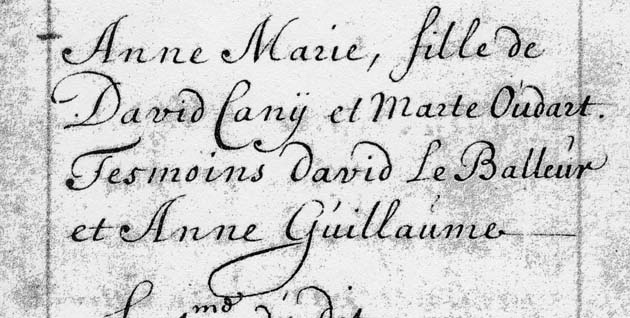 Anne Marie, fille de
David Canÿ et Marte Oudart.
Tesmoins David Le Balleur
et Anne Guillaume